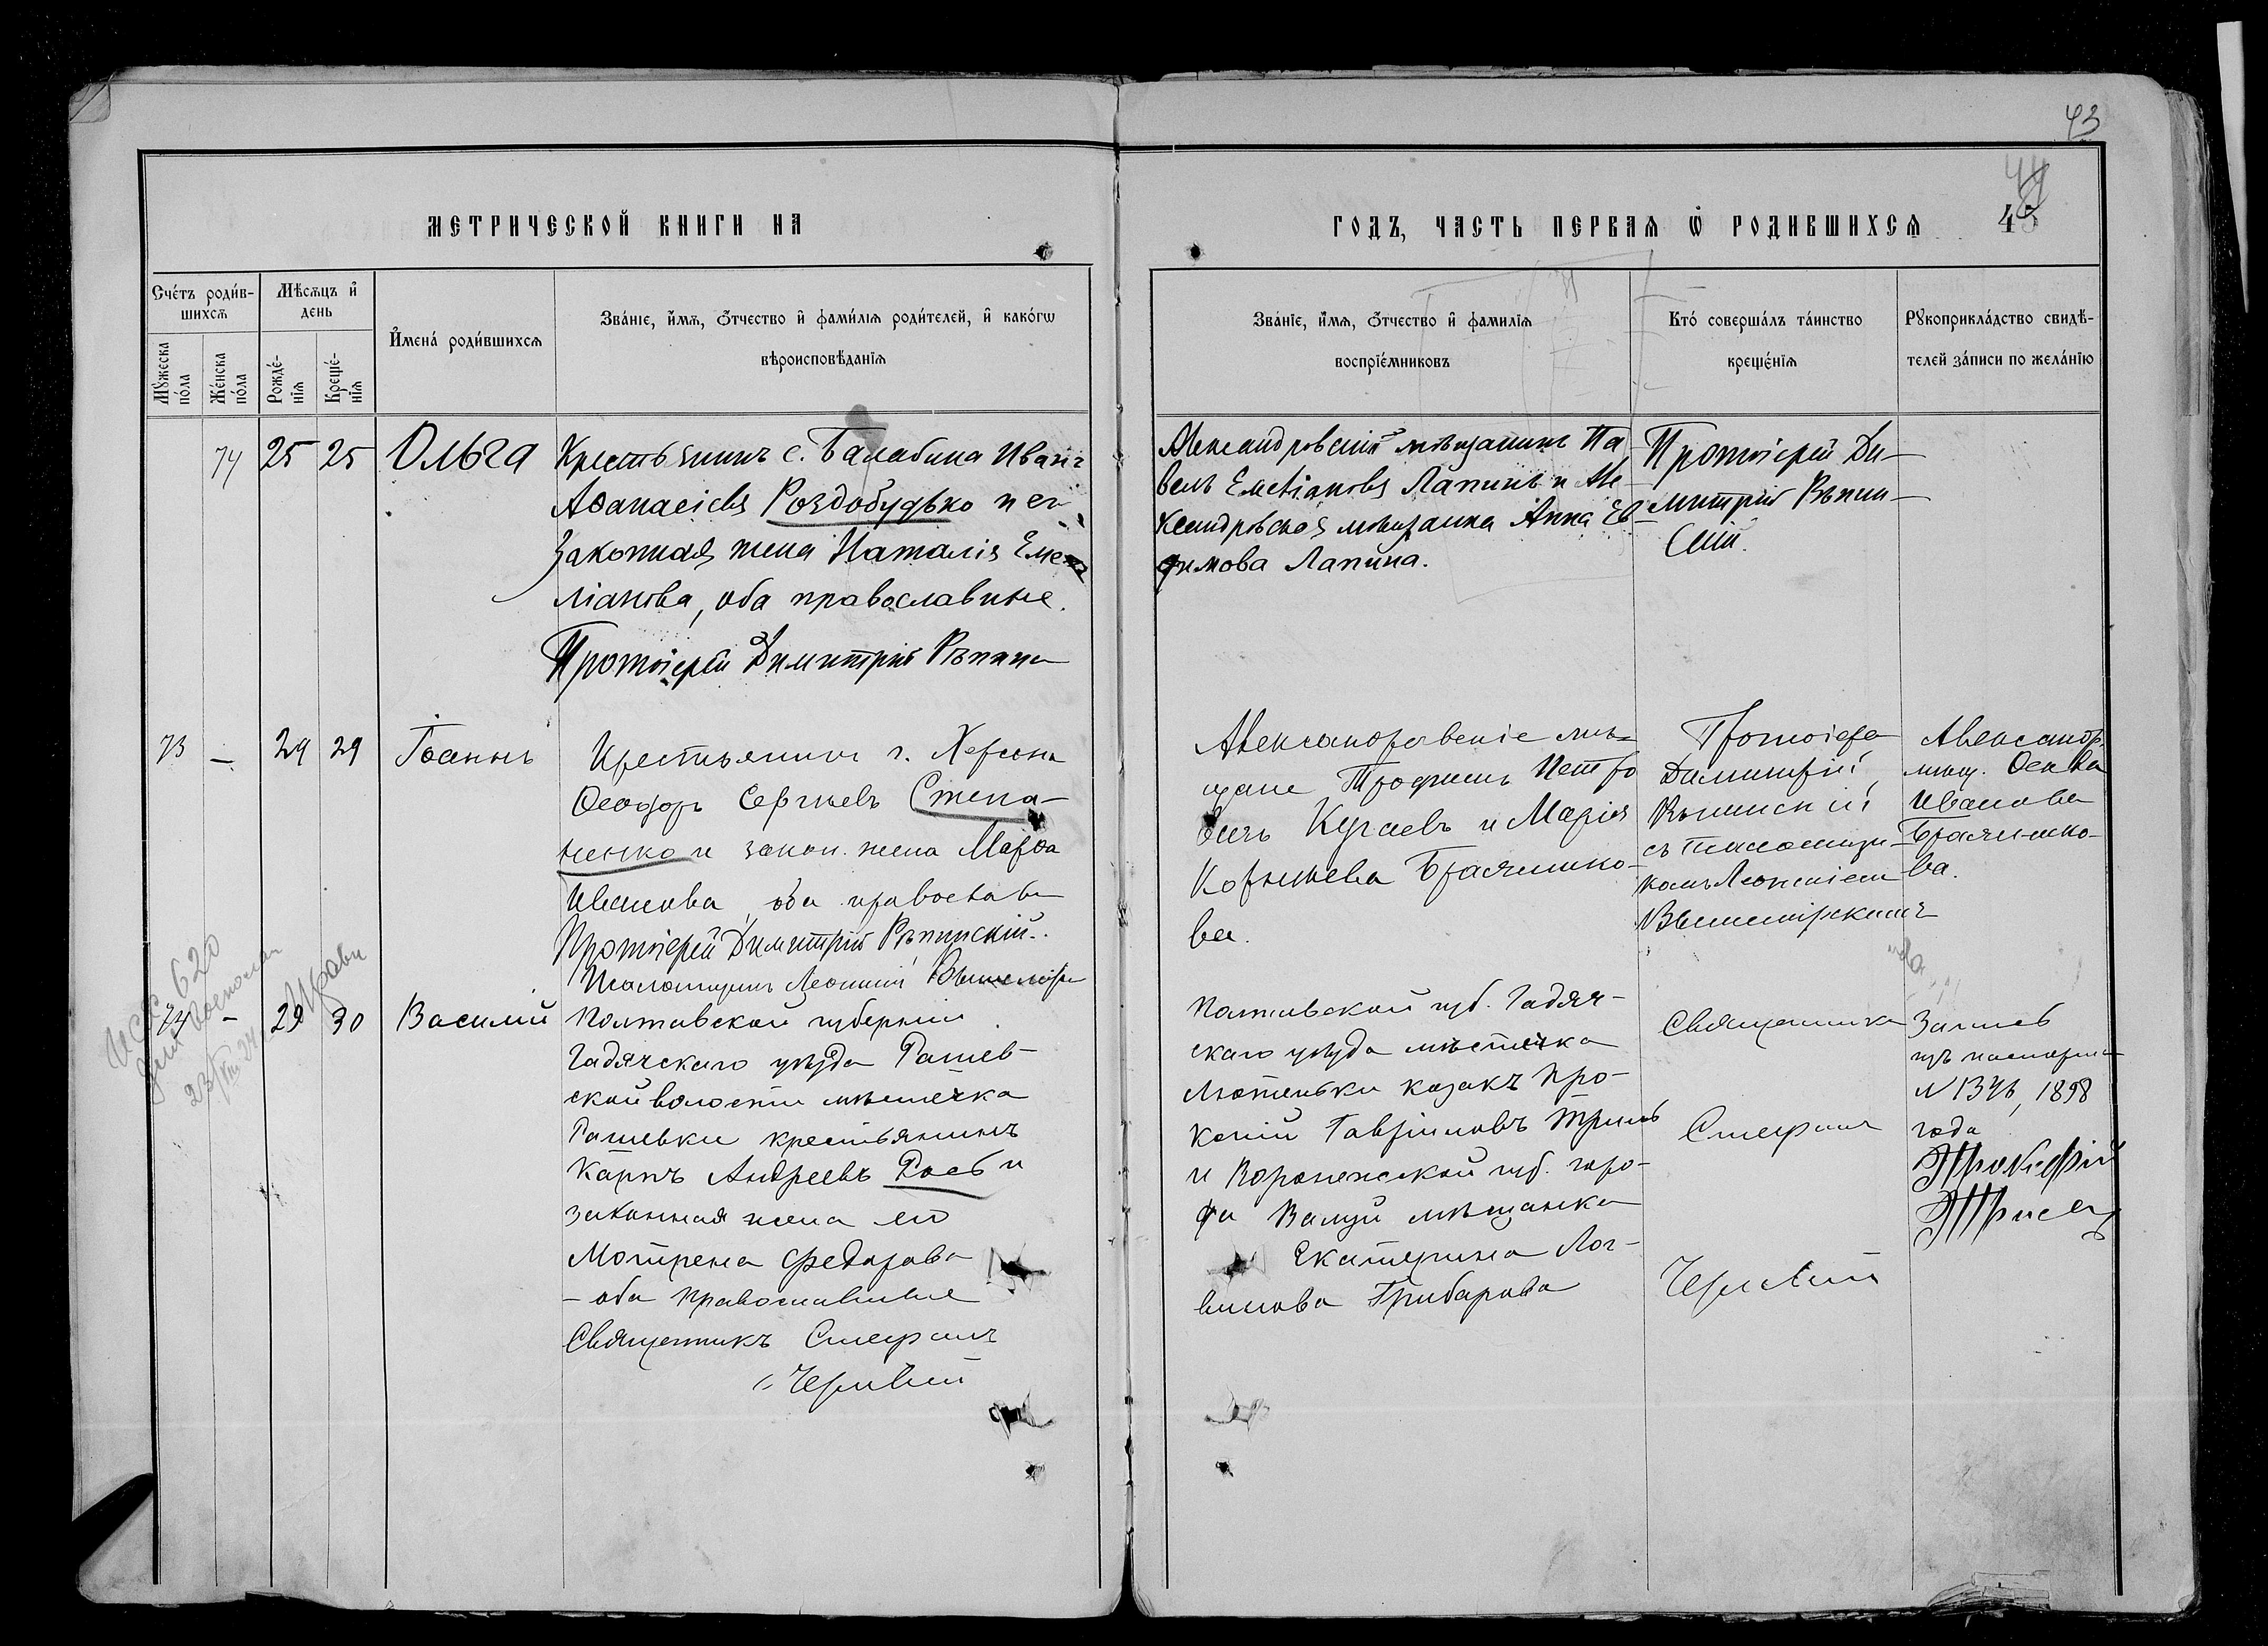 43
44
45
МЕТРИЧЕСКОЙ КНИГИ НА
ГОДЪ, ЧАСТЬ ПЕРВАѦ Ѡ РОДИВШИХСѦ
Счéтъ роди́в-
шихсѧ
Мꙋжеска
по́ла
Же́нска
по́ла
Мѣ́сѧцъ и҆
день
Рожде́-
нїѧ
Креще́-
нїѧ
И҆мена́ роди́вшихсѧ
Зва́нїе, и҆́мѧ, ѻ҆́тчество и҆ фами́лїѧ роди́телей, и҆ како́гѡ
вѣроисповѣ́данїѧ
Зва́нїе, и҆́мѧ, ѻ҆́тчество и҆ фами́лїѧ
воспрїе́мниковъ
Кто́ соверша́лъ та́инство
креще́нїѧ
Рꙋкоприкла́дство свидѣ́-
телей за́писи по жела́нїю
74 25 25 Ольга
Крестьянинъ с. Балабина Иванъ
Аѳанасіевъ Роздобудько и его
законная жена Наталія Еме-
ліанова, оба православные.
Протоіерей Димитрій Рѣпин
Александровскій мѣщанинъ Па
велъ Емеліановъ Лапинъ и Але-
ксандровская мѣщанка Анна Ев
фимова Лапина.
Протоіерей Ди-
митрій Рѣпин-
скій.
73 — 29 29 Іоаннъ
Крестьянинъ г. Херсона
Ѳеодоръ Сергѣевъ Степа-
ненко и закон. жена Марѳа
Иванова, оба православ
Протоіерей Димитрій Рѣпинскій.
Псаломщикъ Леонтій
Александровскіе мѣ-
щане Трофимъ Петро
вичъ Кугаевъ и Марія
Корнѣева Брачинко-
ва.
Протоіерей
Димитрій
Рѣпинскій
съ псаломщи-
комъ Леонтіем
Александр.
мѣщ.
Иванова
Брачинко-
ва.
74 — 29 30 Василій
Полтавской губерніи
Гадячскаго уѣзда Рашев-
ской волости мѣстечка
Рашевки крестьянинъ
Карпъ Андреевъ Рось и
законная жена его
Мотрена Федорова
— оба православные
Священникъ Стефанъ
Полтавской губ. Гадяч-
скаго уѣзда мѣстечка
Лютеньки козакъ Про-
копій Гавріиловъ
и Воронежской губ. горо-
да Валуй мѣщанка
Екатерина Лог-
винова Грибарова
Священник
Стефанъ
Запись
изъ паспорта
N 1346, 1898
года